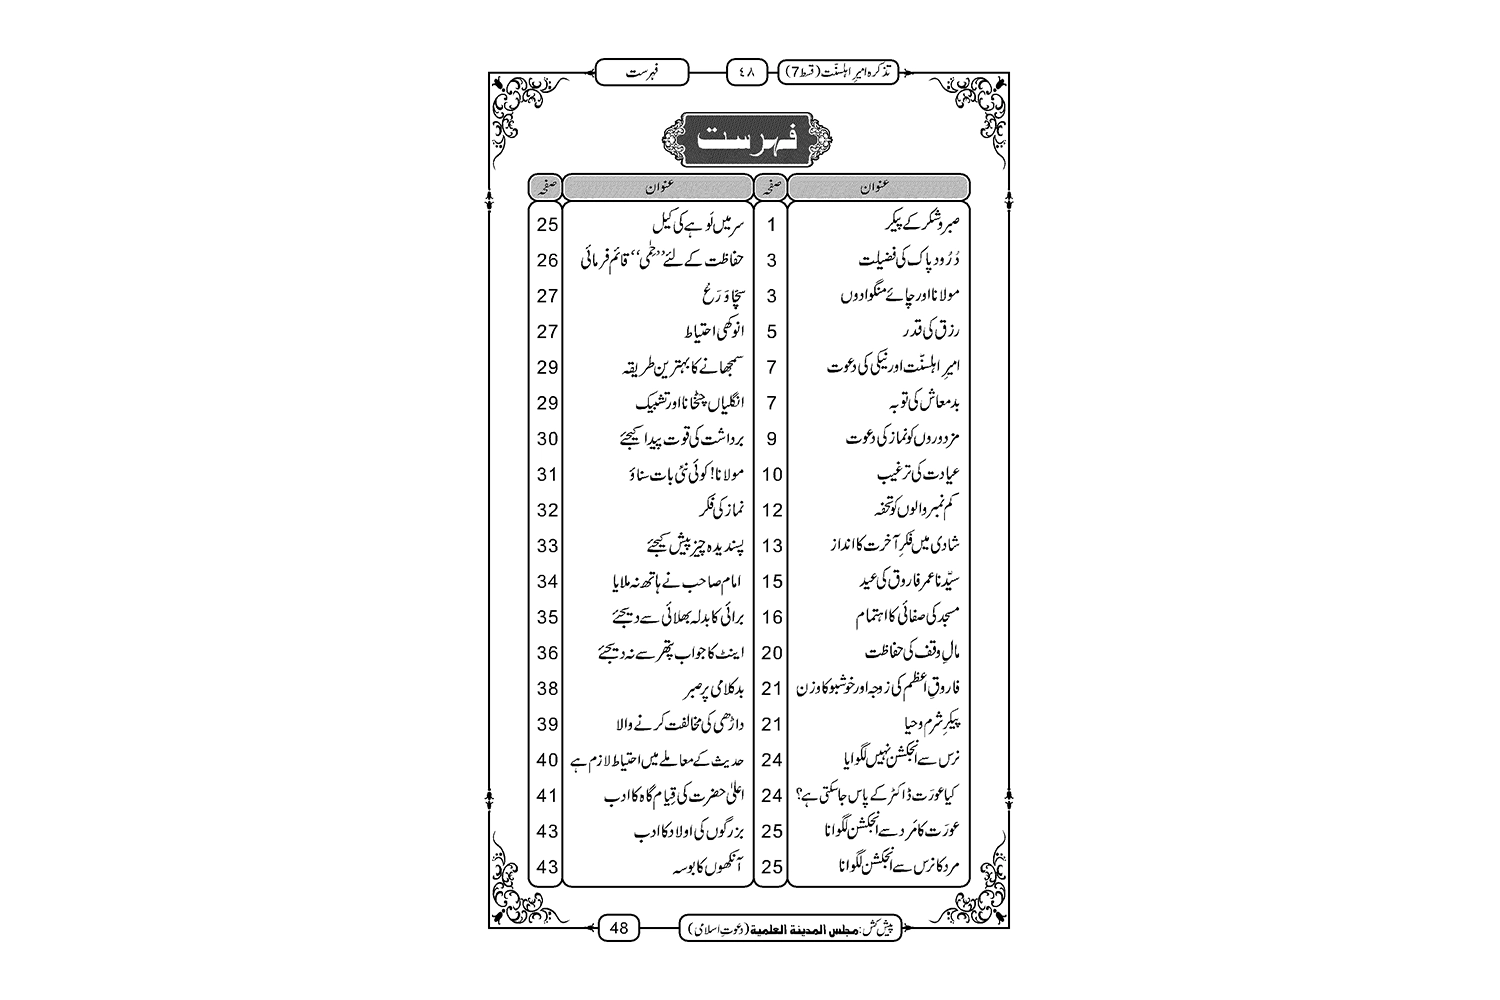 تذکرہ امیرِ اہلسنّت (قسط 7) ٤٨ فہرست
فہرست
عنوان صفحہ عنوان صفحہ
صبر و شکر کے پیکر 1 سر میں لَوہے کی کیل 25
دُرُود پاک کی فضیلت 3 حفاظت کے لئے ’’حِمٰی‘‘ قائم فرمائی 26
مولانا اور چائے منگوا دوں 3 سچّا وَرَعْ 27
رزق کی قدر 5 انوکھی احتیاط 27
امیرِ اہلسنّت اور نیکی کی دعوت 7 سمجھانے کا بہترین طریقہ 29
بدمعاش کی توبہ 7 انگلیاں چٹخانا اور تشبیک 29
مزدوروں کو نماز کی دعوت 9 برداشت کی قوت پیدا کیجئے 30
عیادت کی ترغیب 10 مولانا! کوئی نئی بات سناؤ 31
کم نمبر والوں کو تحفہ 12 نماز کی فکر 32
شادی میں فکرِ آخرت کا انداز 13 پسندیدہ چیز پیش کیجئے 33
سیّدنا عمر فاروق کی عید 15 امام صاحب نے ہاتھ نہ ملایا 34
مسجد کی صفائی کا اہتمام 16 برائی کا بدلہ بھلائی سے دیجئے 35
مالِ وقف کی حفاظت 20 اینٹ کا جواب پتھر سے نہ دیجئے 36
فاروقِ اعظم کی زوجہ اور خوشبو کا وزن 21 بدکلامی پر صبر 38
پیکرِ شرم و حیا 21 داڑھی کی مخالفت کرنے والا 39
نرس سے انجکشن نہیں لگوایا 24 حدیث کے معاملے میں احتیاط لازم ہے 40
کیا عورَت ڈاکٹر کے پاس جاسکتی ہے؟ 24 اعلیٰ حضرت کی قِیام گاہ کا ادب 41
عورَت کا مَرد سے انجکشن لگوانا 25 بزرگوں کی اولاد کا ادب 43
مرد کا نرس سے انجکشن لگوانا 25 آنکھوں کا بوسہ 43
پیش کش: مجلس المدینۃ العلمیۃ (دعوتِ اسلامی) 48